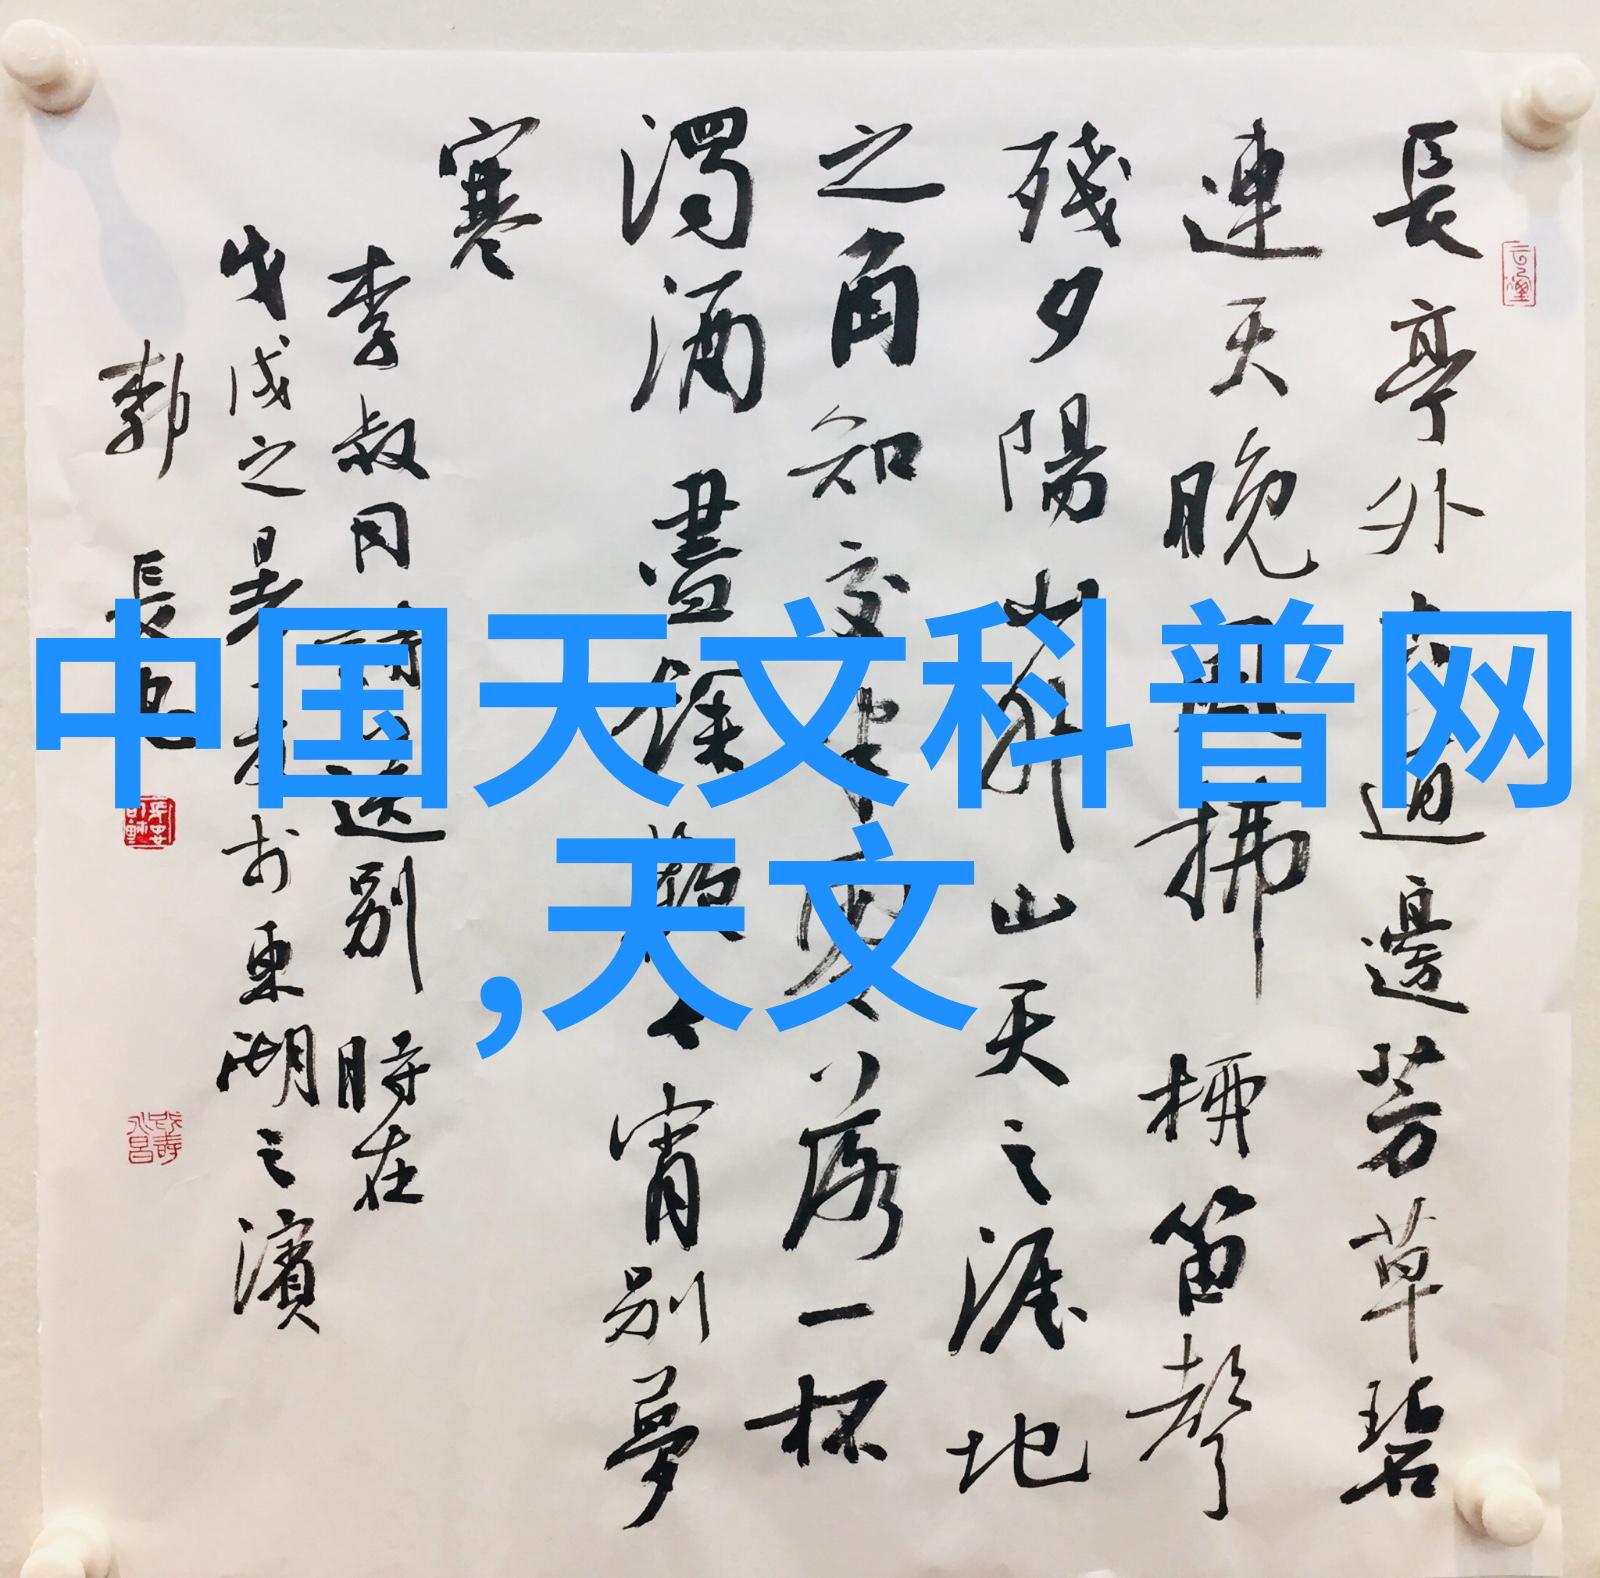 長亭外古道邊芳草碧
連天晚風拂柳笛聲
殘夕陽山外山天之涯地
之角知交半零落一杯
濁酒盡餘歡今宵別夢
寒
李叔同詩送別 時在
戊戌之
於東湖之濱
中国天文科普网
,天文